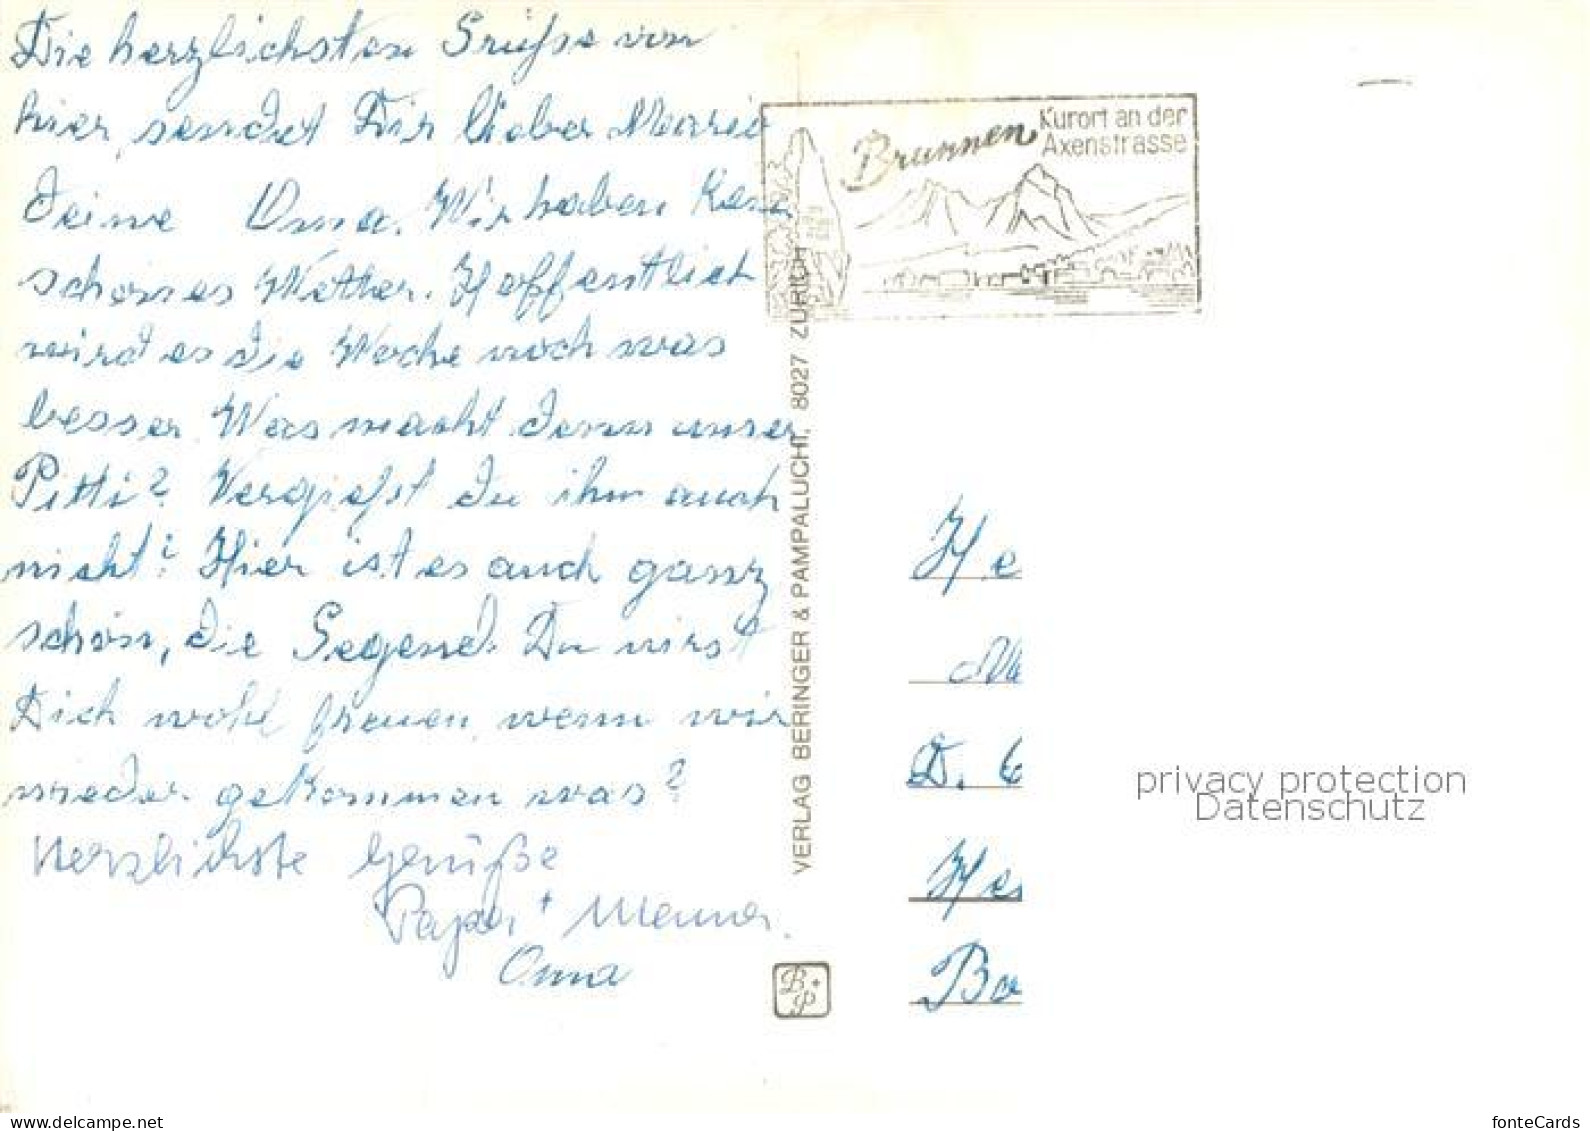 Die herzlichsten Grüße von
hier, sendet Dir lieber Mario
Deine Oma. Wir haben kein
schönes Wetter. Hoffentlich
wird es die Woche noch was
besser. Was macht denn unser
Pitti? Vergißt Du ihn auch
nicht? Hier ist es auch ganz
schön, die Gegend. Du wirst
Dich wohl freuen, wenn wir
wieder gekommen was?
Herzlichste Grüße
Papa + Mama.
Oma
Brunnen Kurort an der
Axenstrasse
VERLAG BERINGER & PAMPALUCHI, 8027 ZÜRICH
B+P
He
D. 6
He
Bo
privacy protection
Datenschutz
www.delcampe.net
fonteCards